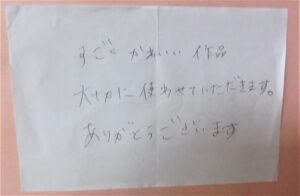 すごく かわいい 作品
大切に使わせていただきます。
ありがとうございます